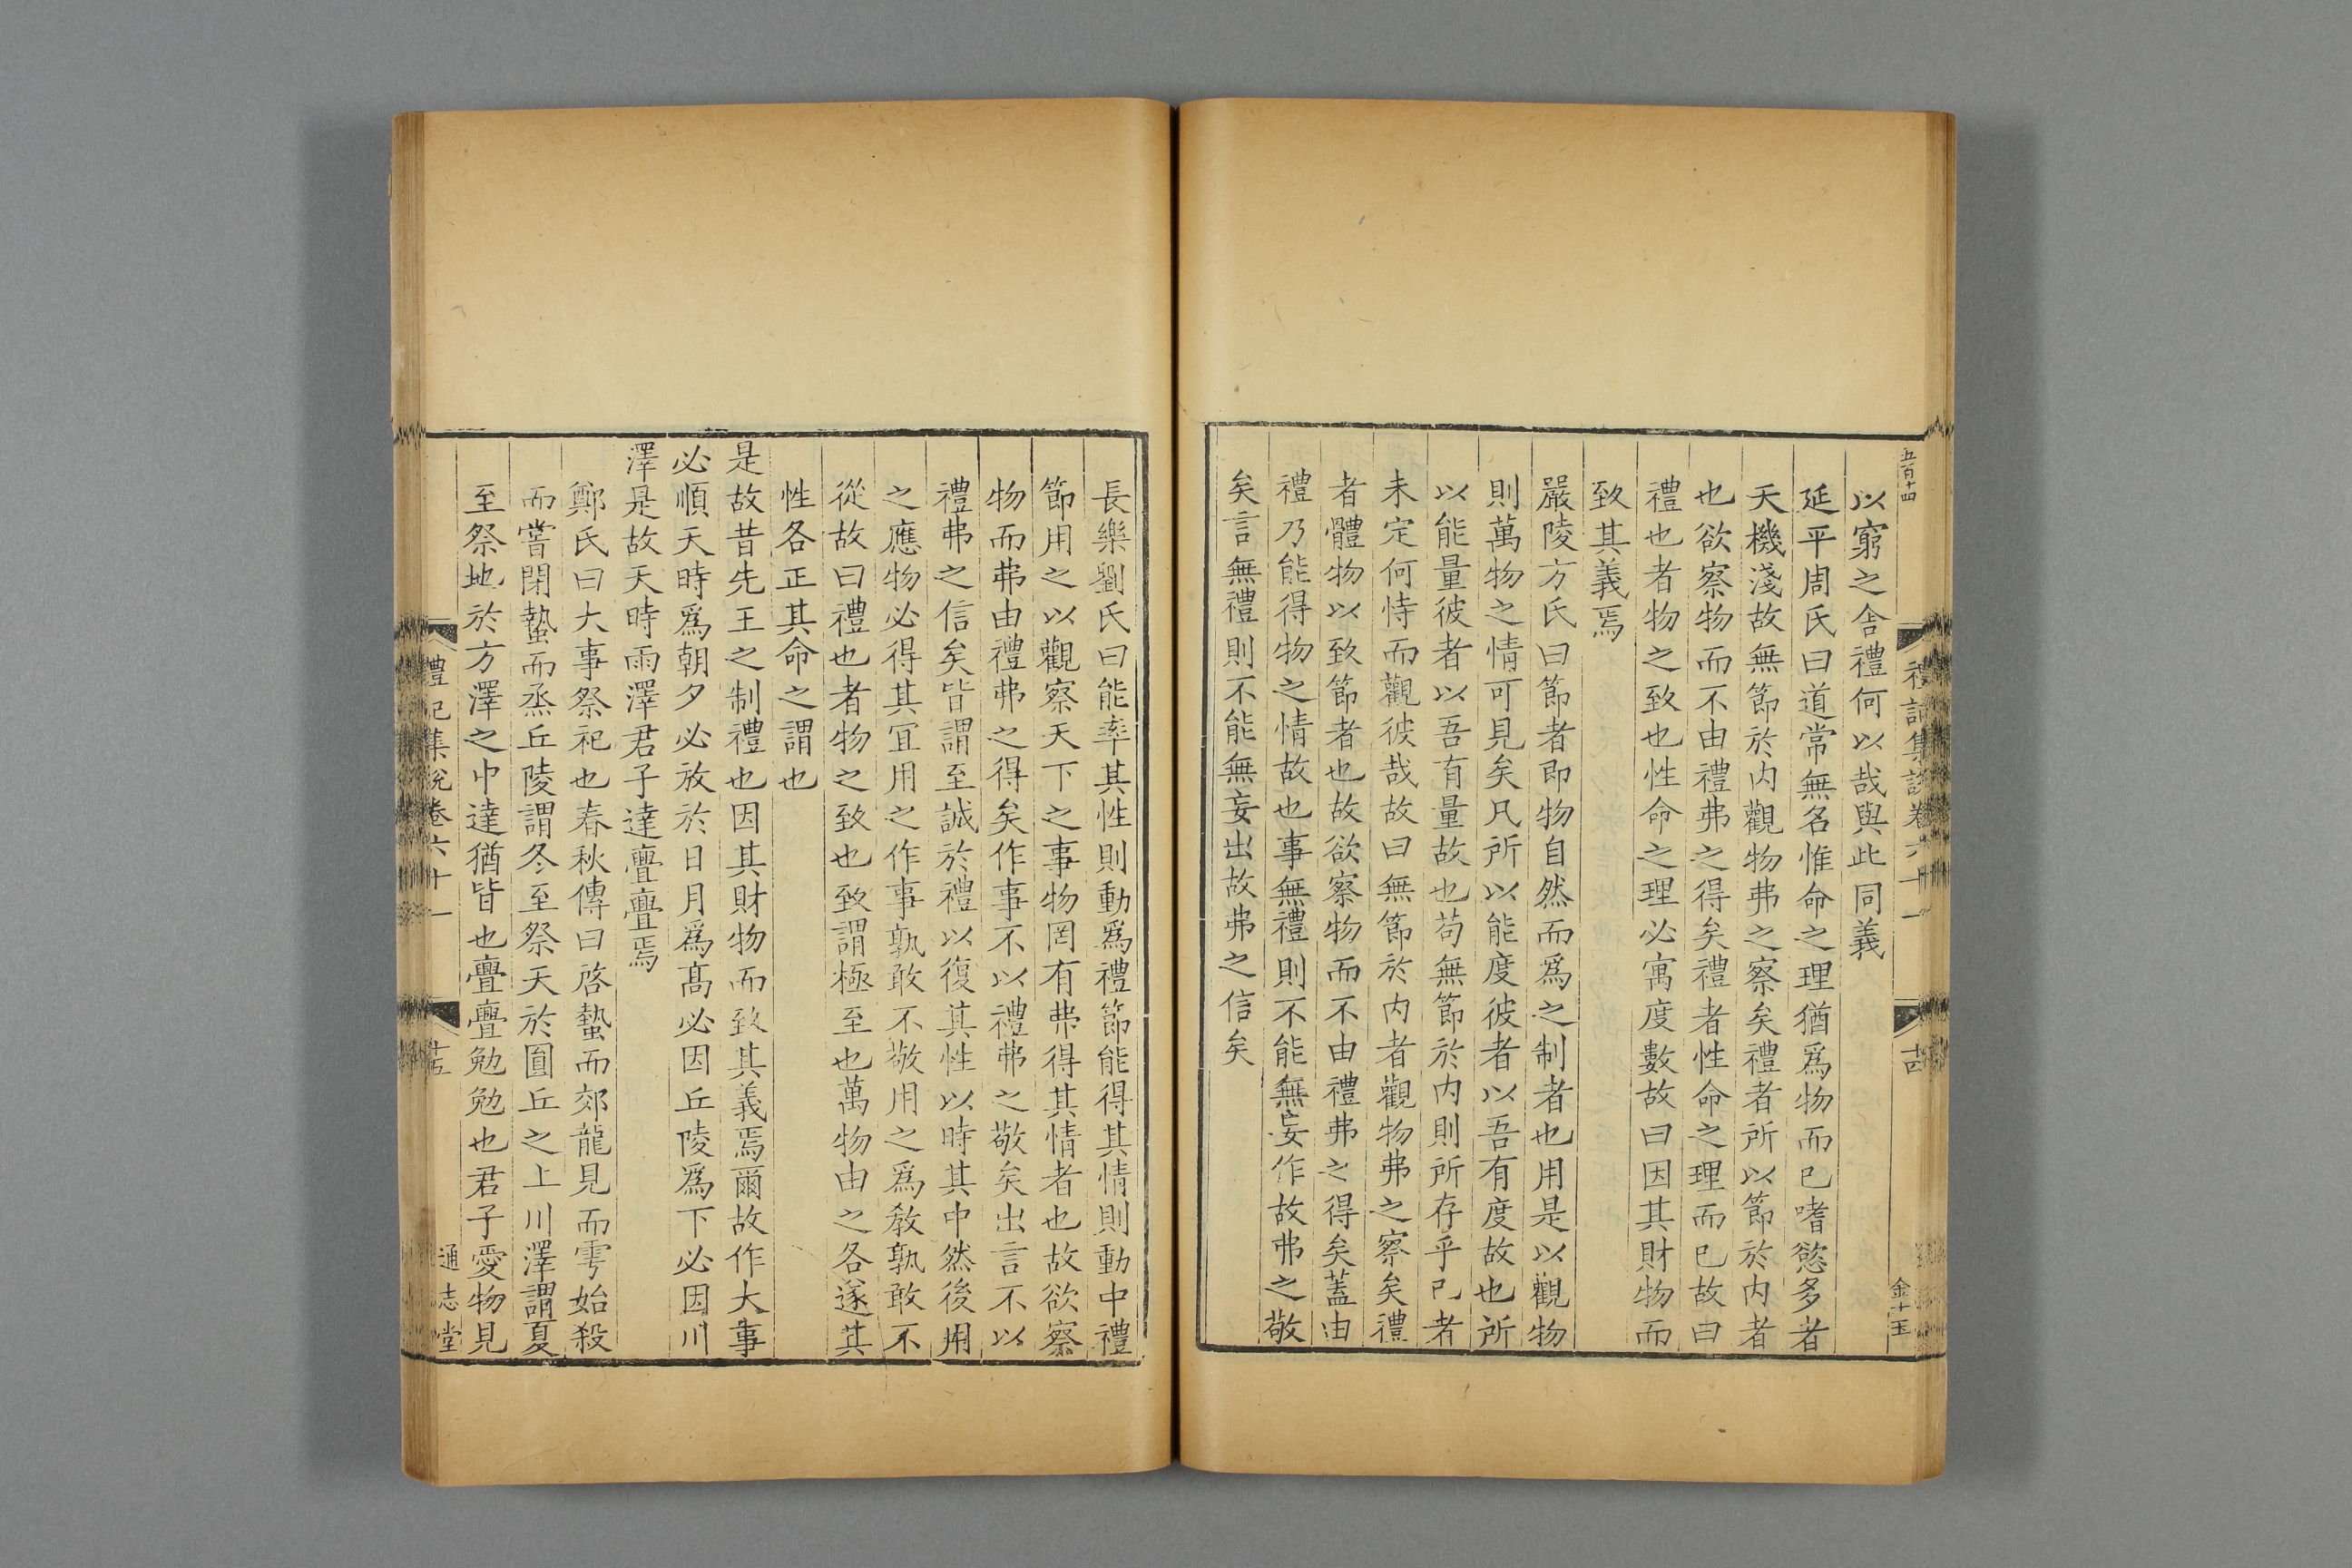 五百十四
禮記集說卷六十一
十四
金士玉
以窮之舍禮何以哉與此同義
延平周氏曰道常無名惟命之理猶爲物而已嗜慾多者
天機淺故無節於内觀物弗之察矣禮者所以節於内者
也欲察物而不由禮弗之得矣禮者性命之理而已故曰
禮也者物之致也性命之理必寓度數故曰因其財物而
致其義焉
嚴陵方氏曰節者即物自然而爲之制者也用是以觀物
則萬物之情可見矣凡所以能度彼者以吾有度故也所
以能量彼者以吾有量故也苟無節於内則所存乎已者
未定何恃而觀彼哉故曰無節於内者觀物弗之察矣禮
者體物以致節者也故欲察物而不由禮弗之得矣蓋由
禮乃能得物之情故也事無禮則不能無妄作故弗之敬
矣言無禮則不能無妄出故弗之信矣
長樂劉氏曰能率其性則動爲禮節能得其情則動中禮
節用之以觀察天下之事物罔有弗得其情者也故欲察
物而弗由禮弗之得矣作事不以禮弗之敬矣出言不以
禮弗之信矣皆謂至誠於禮以復其性以時其中然後用
之應物必得其宜用之作事孰敢不敬用之爲教孰敢不
從故曰禮也者物之致也致謂極至也萬物由之各遂其
性各正其命之謂也
是故昔先王之制禮也因其財物而致其義焉爾故作大事
必順天時爲朝夕必放於日月爲高必因丘陵爲下必因川
澤是故天時雨澤君子達亹亹焉
鄭氏曰大事祭祀也春秋傳曰啓蟄而郊龍見而雩始殺
而嘗閉蟄而烝丘陵謂冬至祭天於圜丘之上川澤謂夏
至祭地於方澤之中達猶皆也亹亹勉勉也君子愛物見
禮記集說卷六十一
十五
通志堂